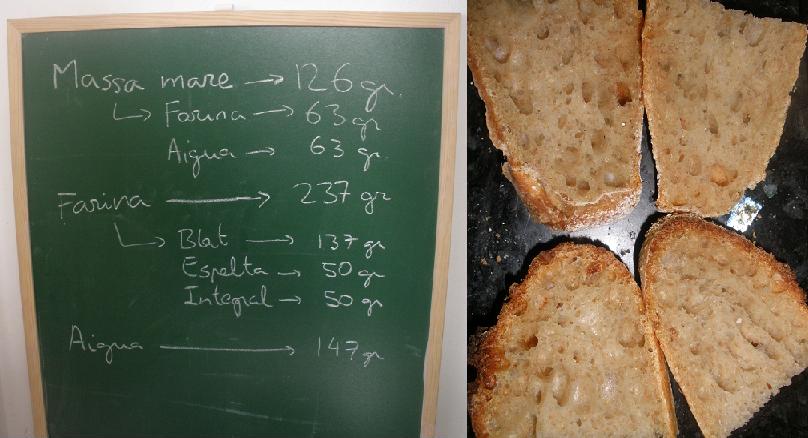 Massa mare → 126 gr.
↳ Farina → 63 gr
Aigua → 63 gr.
Farina → 237 gr
↳ Blat → 137 gr
Espelta → 50 gr
Integral → 50 gr
Aigua → 147 gr